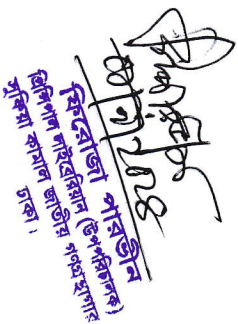 ফিরোজা পারভীন
প্রিন্সিপাল লাইব্রেরিয়ান (উপপরিচালক)
সুফিয়া কামাল জাতীয় গণগ্রন্থাগার
ঢাকা।